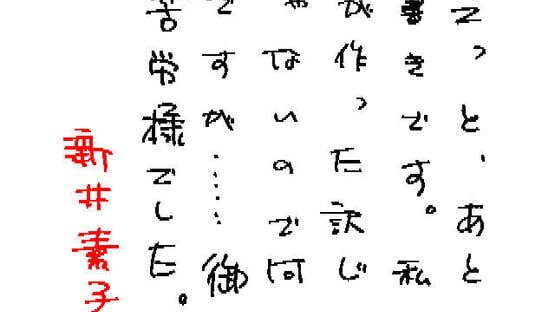 えっと、あと
書きです。私
が作った訳じ
ゃないので何
ですが……御
苦労様でした。
新井素子